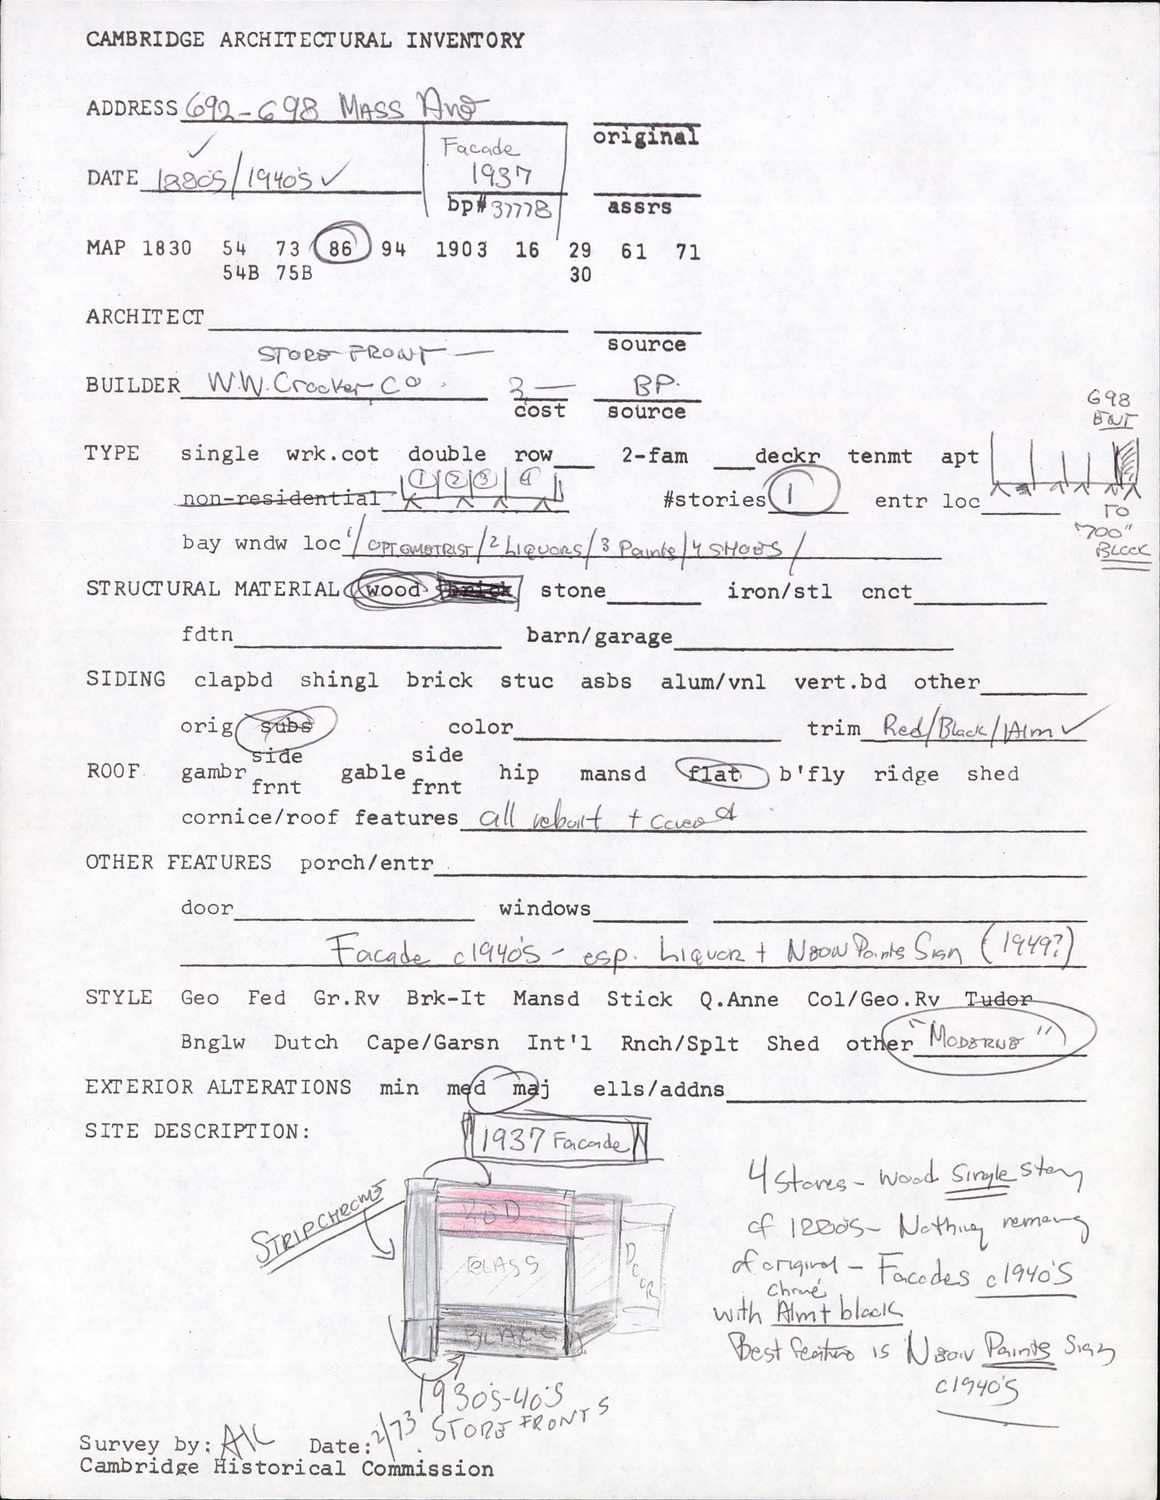 CAMBRIDGE ARCHITECTURAL INVENTORY
ADDRESS 692-698 MASS AVE
original
Facade
1937
bp# 37778
DATE 1880's/1940's ✓
assrs
MAP 1830 54 73 86 94 1903 16 29 61 71
54B 75B 30
ARCHITECT
source
STORE FRONT —
BUILDER W.W. Crocker, Co. 3— BP.
cost source
698
ENT
TYPE single wrk.cot double row 2-fam deckr tenmt apt
non-residential 1 2 3 4 #stories 1 entr loc
TO
"700"
BLOCK
bay wndw loc 1/ OPTOMETRIST/2 LIQUORS/3 Paints/4 SHOES/
STRUCTURAL MATERIAL wood brick stone iron/stl cnct
fdtn barn/garage
SIDING clapbd shingl brick stuc asbs alum/vnl vert.bd other
orig subs color trim Red/Black/Alm ✓
ROOF gambr side frnt gable side frnt hip mansd flat b'fly ridge shed
cornice/roof features all rebuilt + covered
OTHER FEATURES porch/entr
door windows
Facade c1940's - esp. Liquor + Neon Paints Sign (1949?)
STYLE Geo Fed Gr.Rv Brk-It Mansd Stick Q.Anne Col/Geo.Rv Tudor
Bnglw Dutch Cape/Garsn Int'l Rnch/Splt Shed other "MODERNE"
EXTERIOR ALTERATIONS min med maj ells/addns
SITE DESCRIPTION:
1937 Facade
STRIP CHROME
RED
GLASS
DOOR
BLACK
1930's-40's
STORE FRONTS
4 stores - wood single story
of 1880's - Nothing remaing
of original - Facades c1940's
chrome
with Alm + black
Best feature is Neon Paints Sign
c1940's
Survey by: Date: 2/73
Cambridge Historical Commission